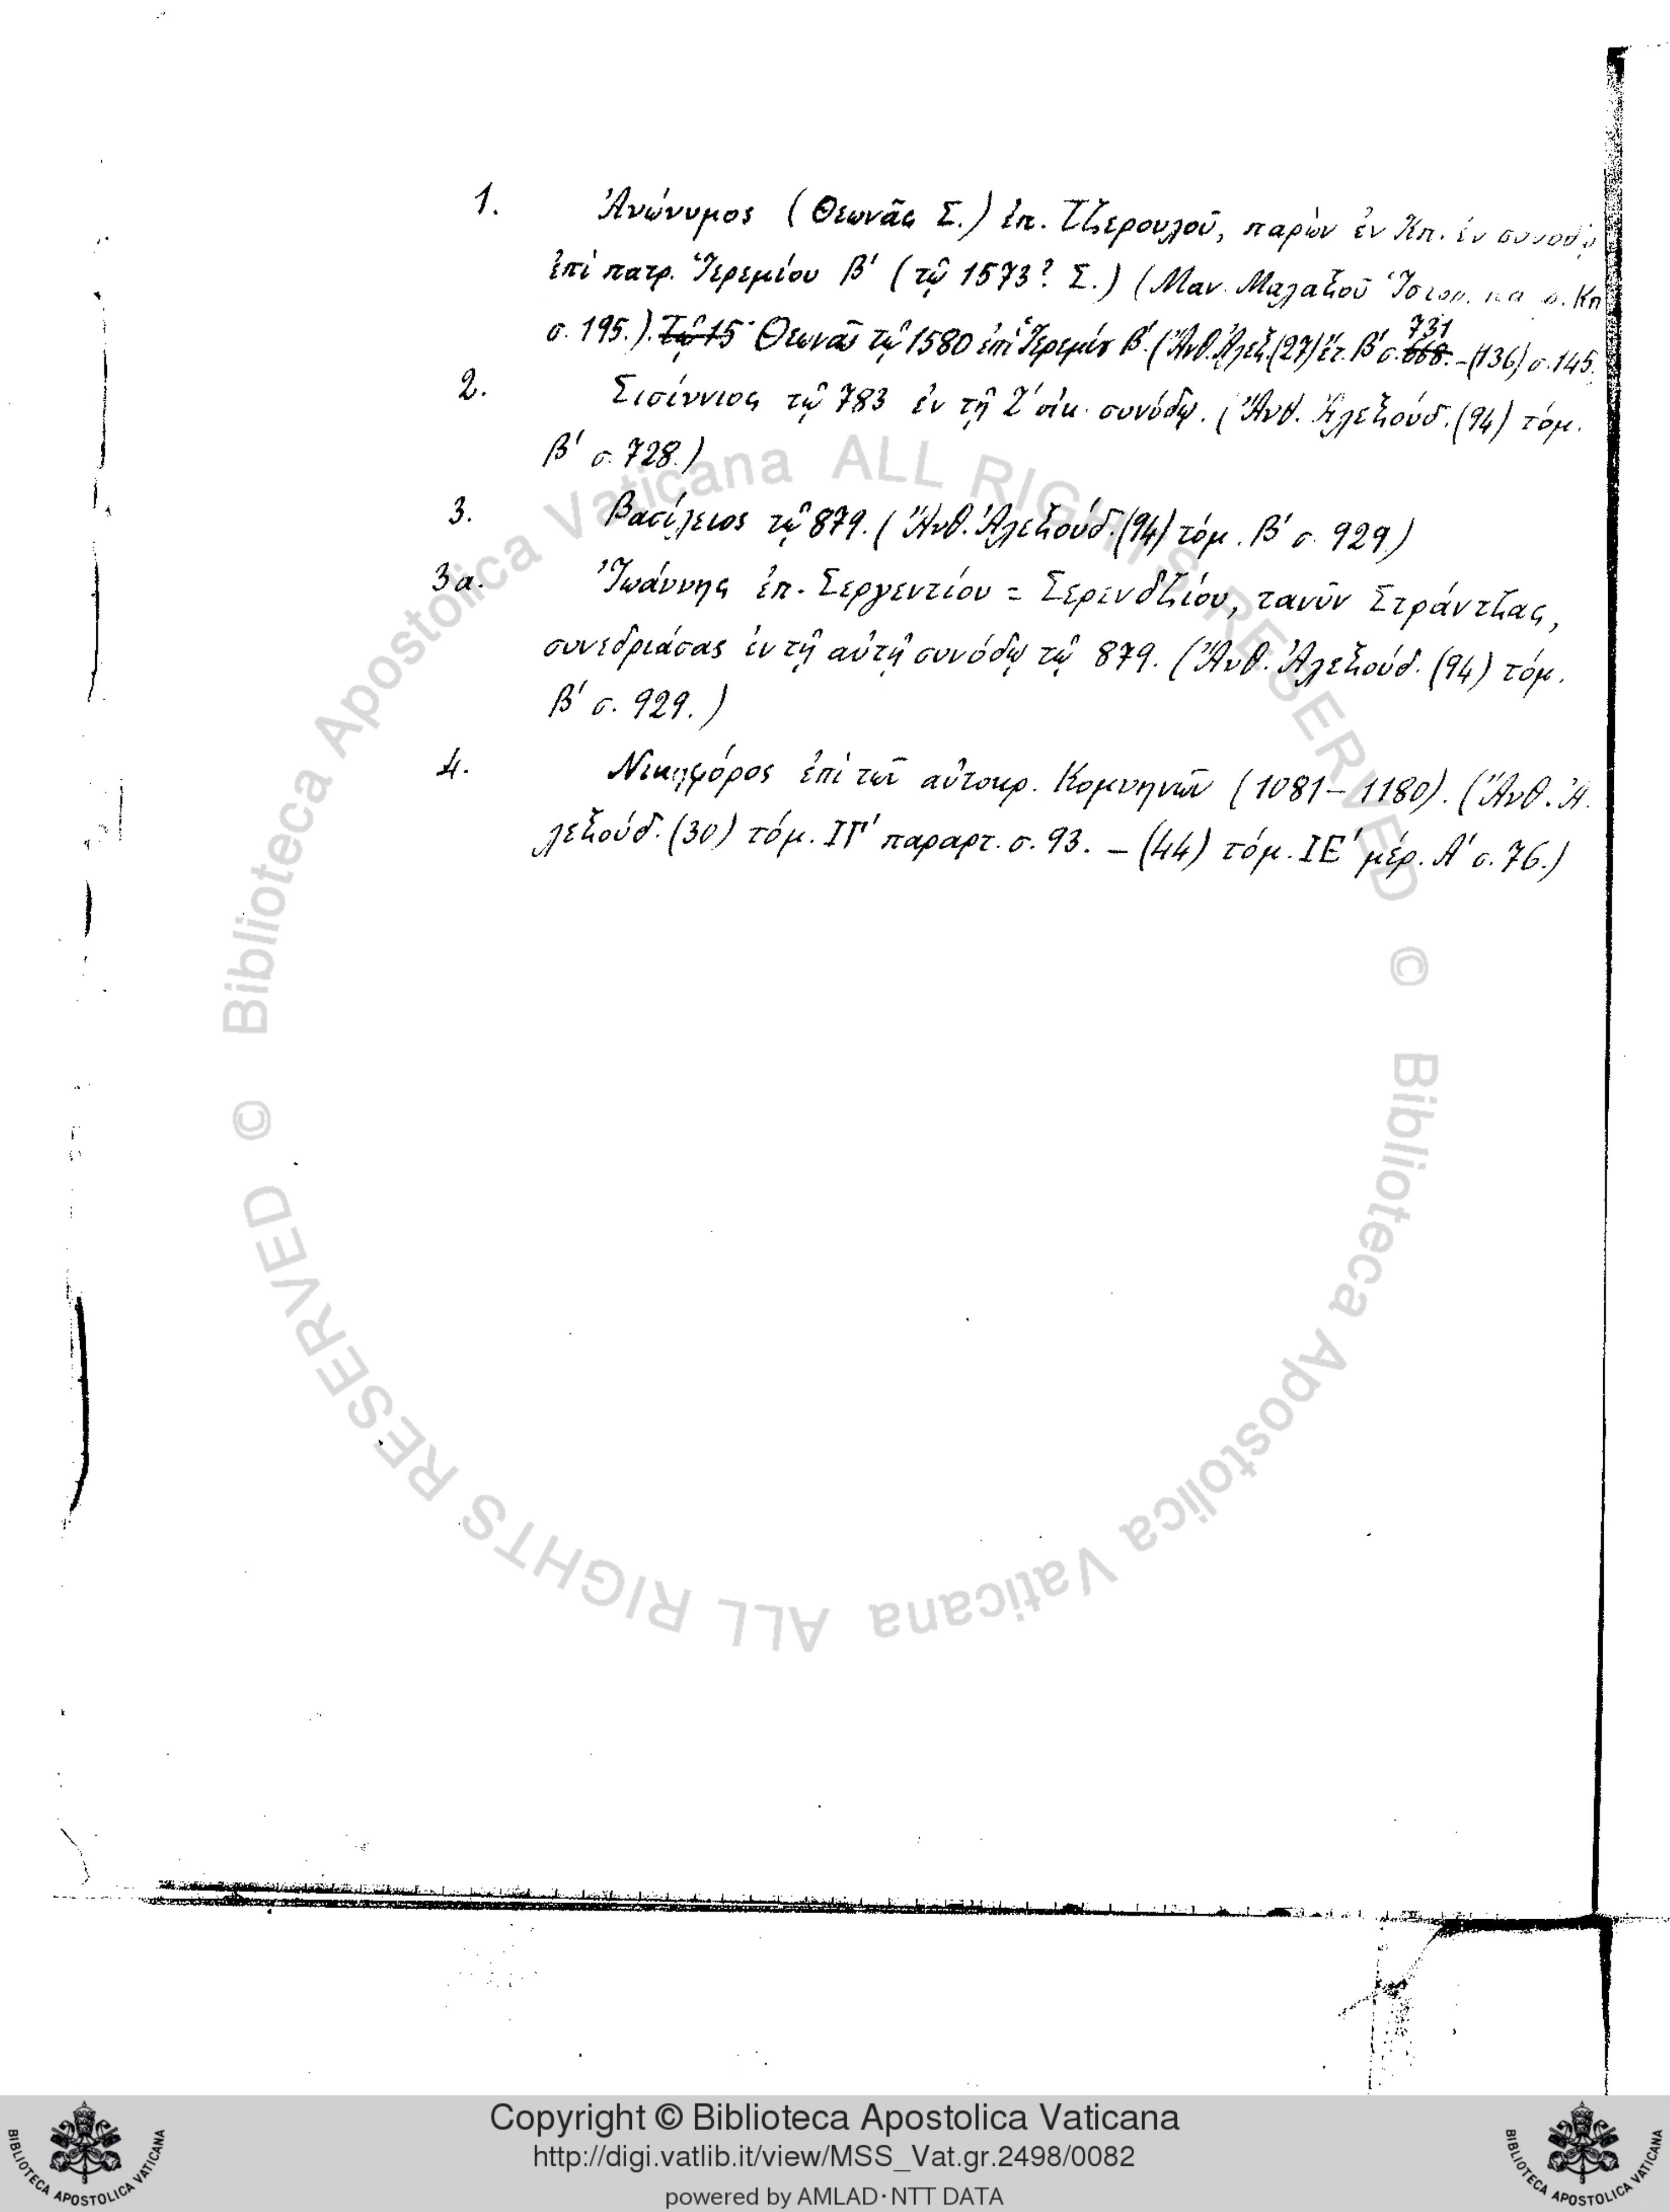 1. Ἀνώνυμος (Θεωνᾶς Σ.) ἐπ. Τζερουλοῦ, παρὼν ἐν Κπ. ἐν συνόδῳ
ἐπὶ πατρ. Ἱερεμίου Β΄ (τῷ 1573? Σ.) (Μαν. Μαλαξοῦ Ἱστορ. πα Κπ
σ. 195.). Τῷ 15 Θεωνᾶς τῷ 1580 ἐπὶ Ἱερεμίου Β΄. (Ἄνθ. Ἀλεξ. (27) ἔτ. Β΄ σ. 668. 731 – (136) σ. 145.
2. Σισίννιος τῷ 783 ἐν τῇ Ζ΄ οἰκ. συνόδῳ. (Ἄνθ. Ἀλεξούδ. (94) τόμ.
Β΄ σ. 728.)
3. Βασίλειος τῷ 879. (Ἄνθ. Ἀλεξούδ. (94) τόμ. Β΄ σ. 929)
3α. Ἰωάννης ἐπ. Σεργεντίου = Σερενδζίου, τανῦν Στράντζας,
συνεδριάσας ἐν τῇ αὐτῇ συνόδῳ τῷ 879. (Ἄνθ. Ἀλεξούδ. (94) τόμ.
Β΄ σ. 929.)
4. Νικηφόρος ἐπὶ τῶν αὐτοκρ. Κομνηνῶν (1081–1180). (Ἄνθ. Ἀ.
λεξούδ. (30) τόμ. ΙΓ΄ παραρτ. σ. 93. – (44) τόμ. ΙΕ΄ μέρ. Α΄ σ. 76.)
© Biblioteca Apostolica Vaticana ALL RIGHTS RESERVED
© Biblioteca Apostolica Vaticana ALL RIGHTS RESERVED
Copyright © Biblioteca Apostolica Vaticana
http://digi.vatlib.it/view/MSS_Vat.gr.2498/0082
powered by AMLAD·NTT DATA
BIBLIOTECA APOSTOLICA VATICANA
BIBLIOTECA APOSTOLICA VATICANA